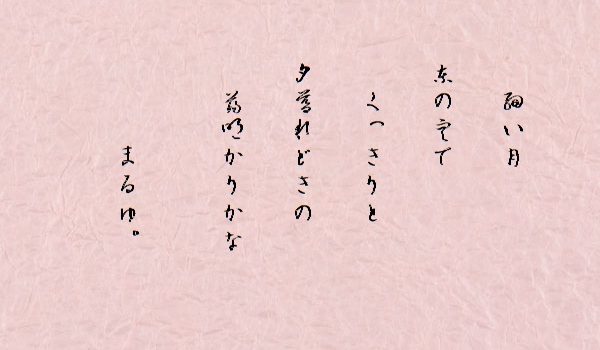 細い月
東の空で
くっきりと
夕暮れどきの
薄明かりかな
まるゆ。